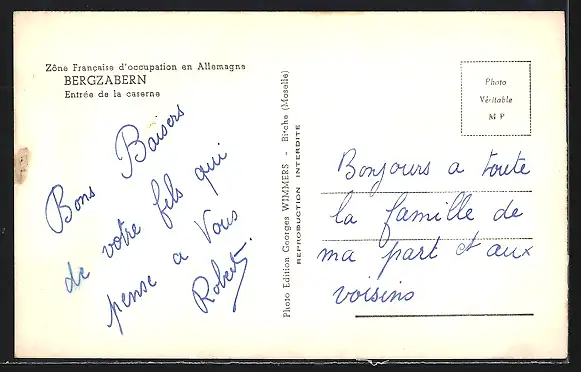 Zône Française d'occupation en Allemagne
BERGZABERN
Entrée de la caserne
Bons Baisers
de votre fils qui
pense a Vous
Robert
Photo Edition Georges WIMMERS - Bitche (Moselle)
REPRODUCTION INTERDITE
Photo
Véritable
M P
Bonjours a toute
la famille de
ma part et aux
voisins